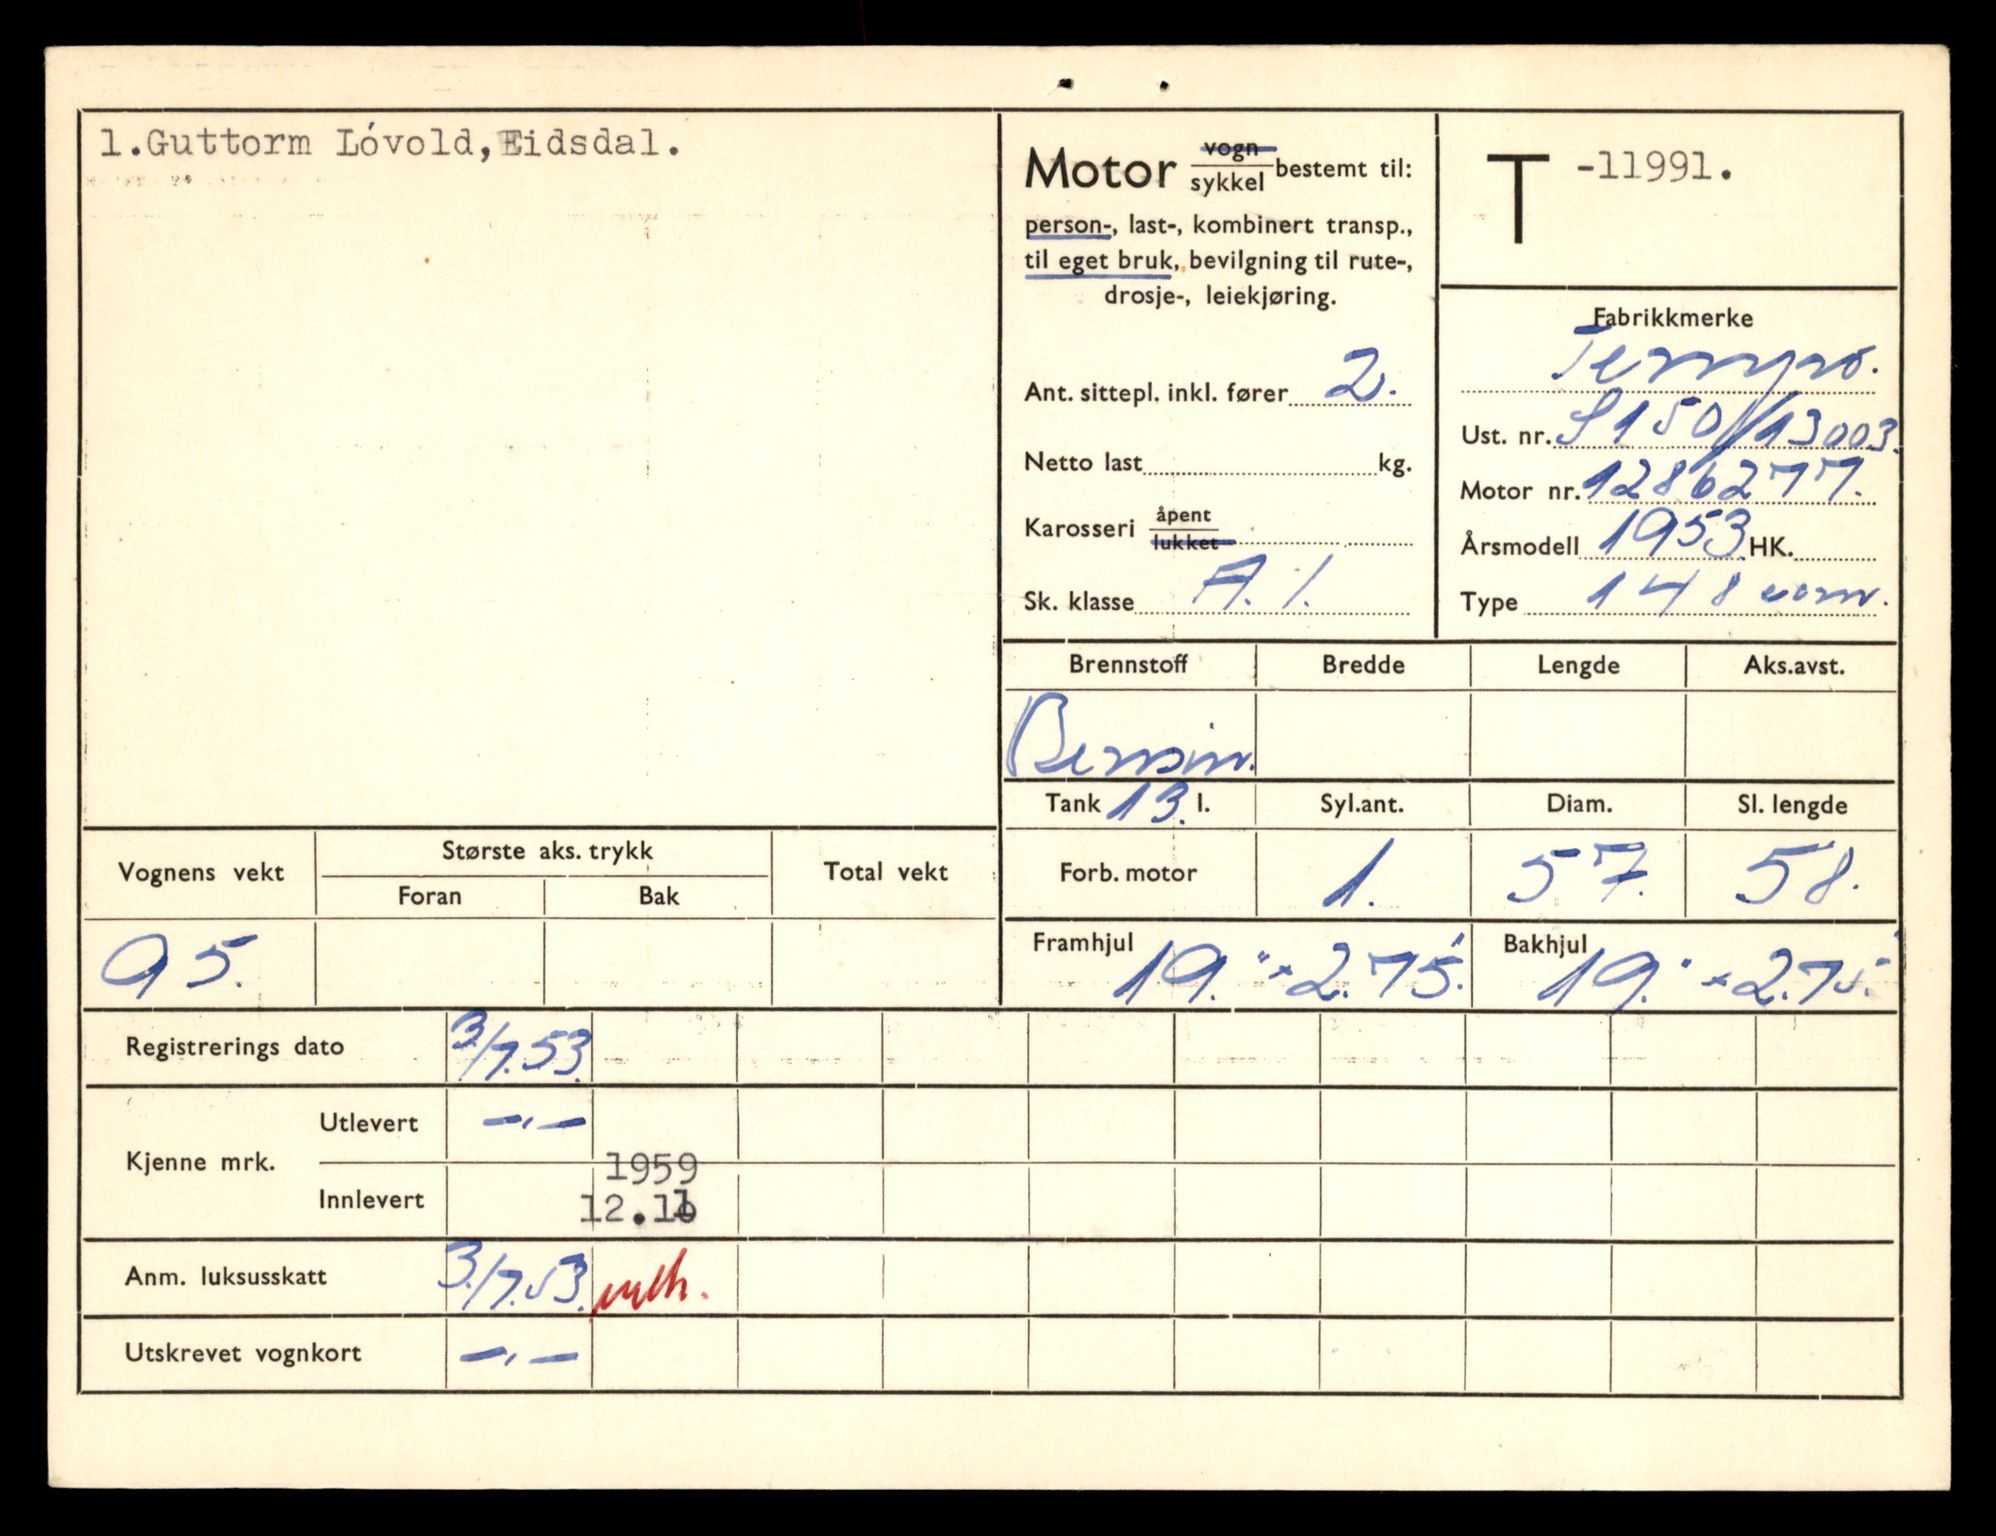 1.Guttorm Lóvold, Eidsdal.
Motor vogn/sykkel bestemt til:
person-, last-, kombinert transp.,
til eget bruk, bevilgning til rute-,
drosje-, leiekjøring.
Ant. sittepl. inkl. fører 2.
Netto last kg.
Karosseri åpent/lukket
Sk. klasse A.1.
T -11991.
Fabrikkmerke
Tempo.
Ust. nr. S150/13003.
Motor nr. 1286277.
Årsmodell 1953 HK.
Type 148 ccm.
Brennstoff Bredde Lengde Aks.avst.
Bensin.
Tank 13. l. Syl.ant. Diam. Sl. lengde
Forb. motor 1. 57. 58.
Framhjul 19." x 2.75. Bakhjul 19." x 2.75.
Vognens vekt Største aks. trykk Total vekt
Foran Bak
95.
Registrerings dato 3/7.53.
Kjenne mrk. Utlevert —.—
Innlevert 1959
12.1
Anm. luksusskatt 3./7.53.
Utskrevet vognkort —.—